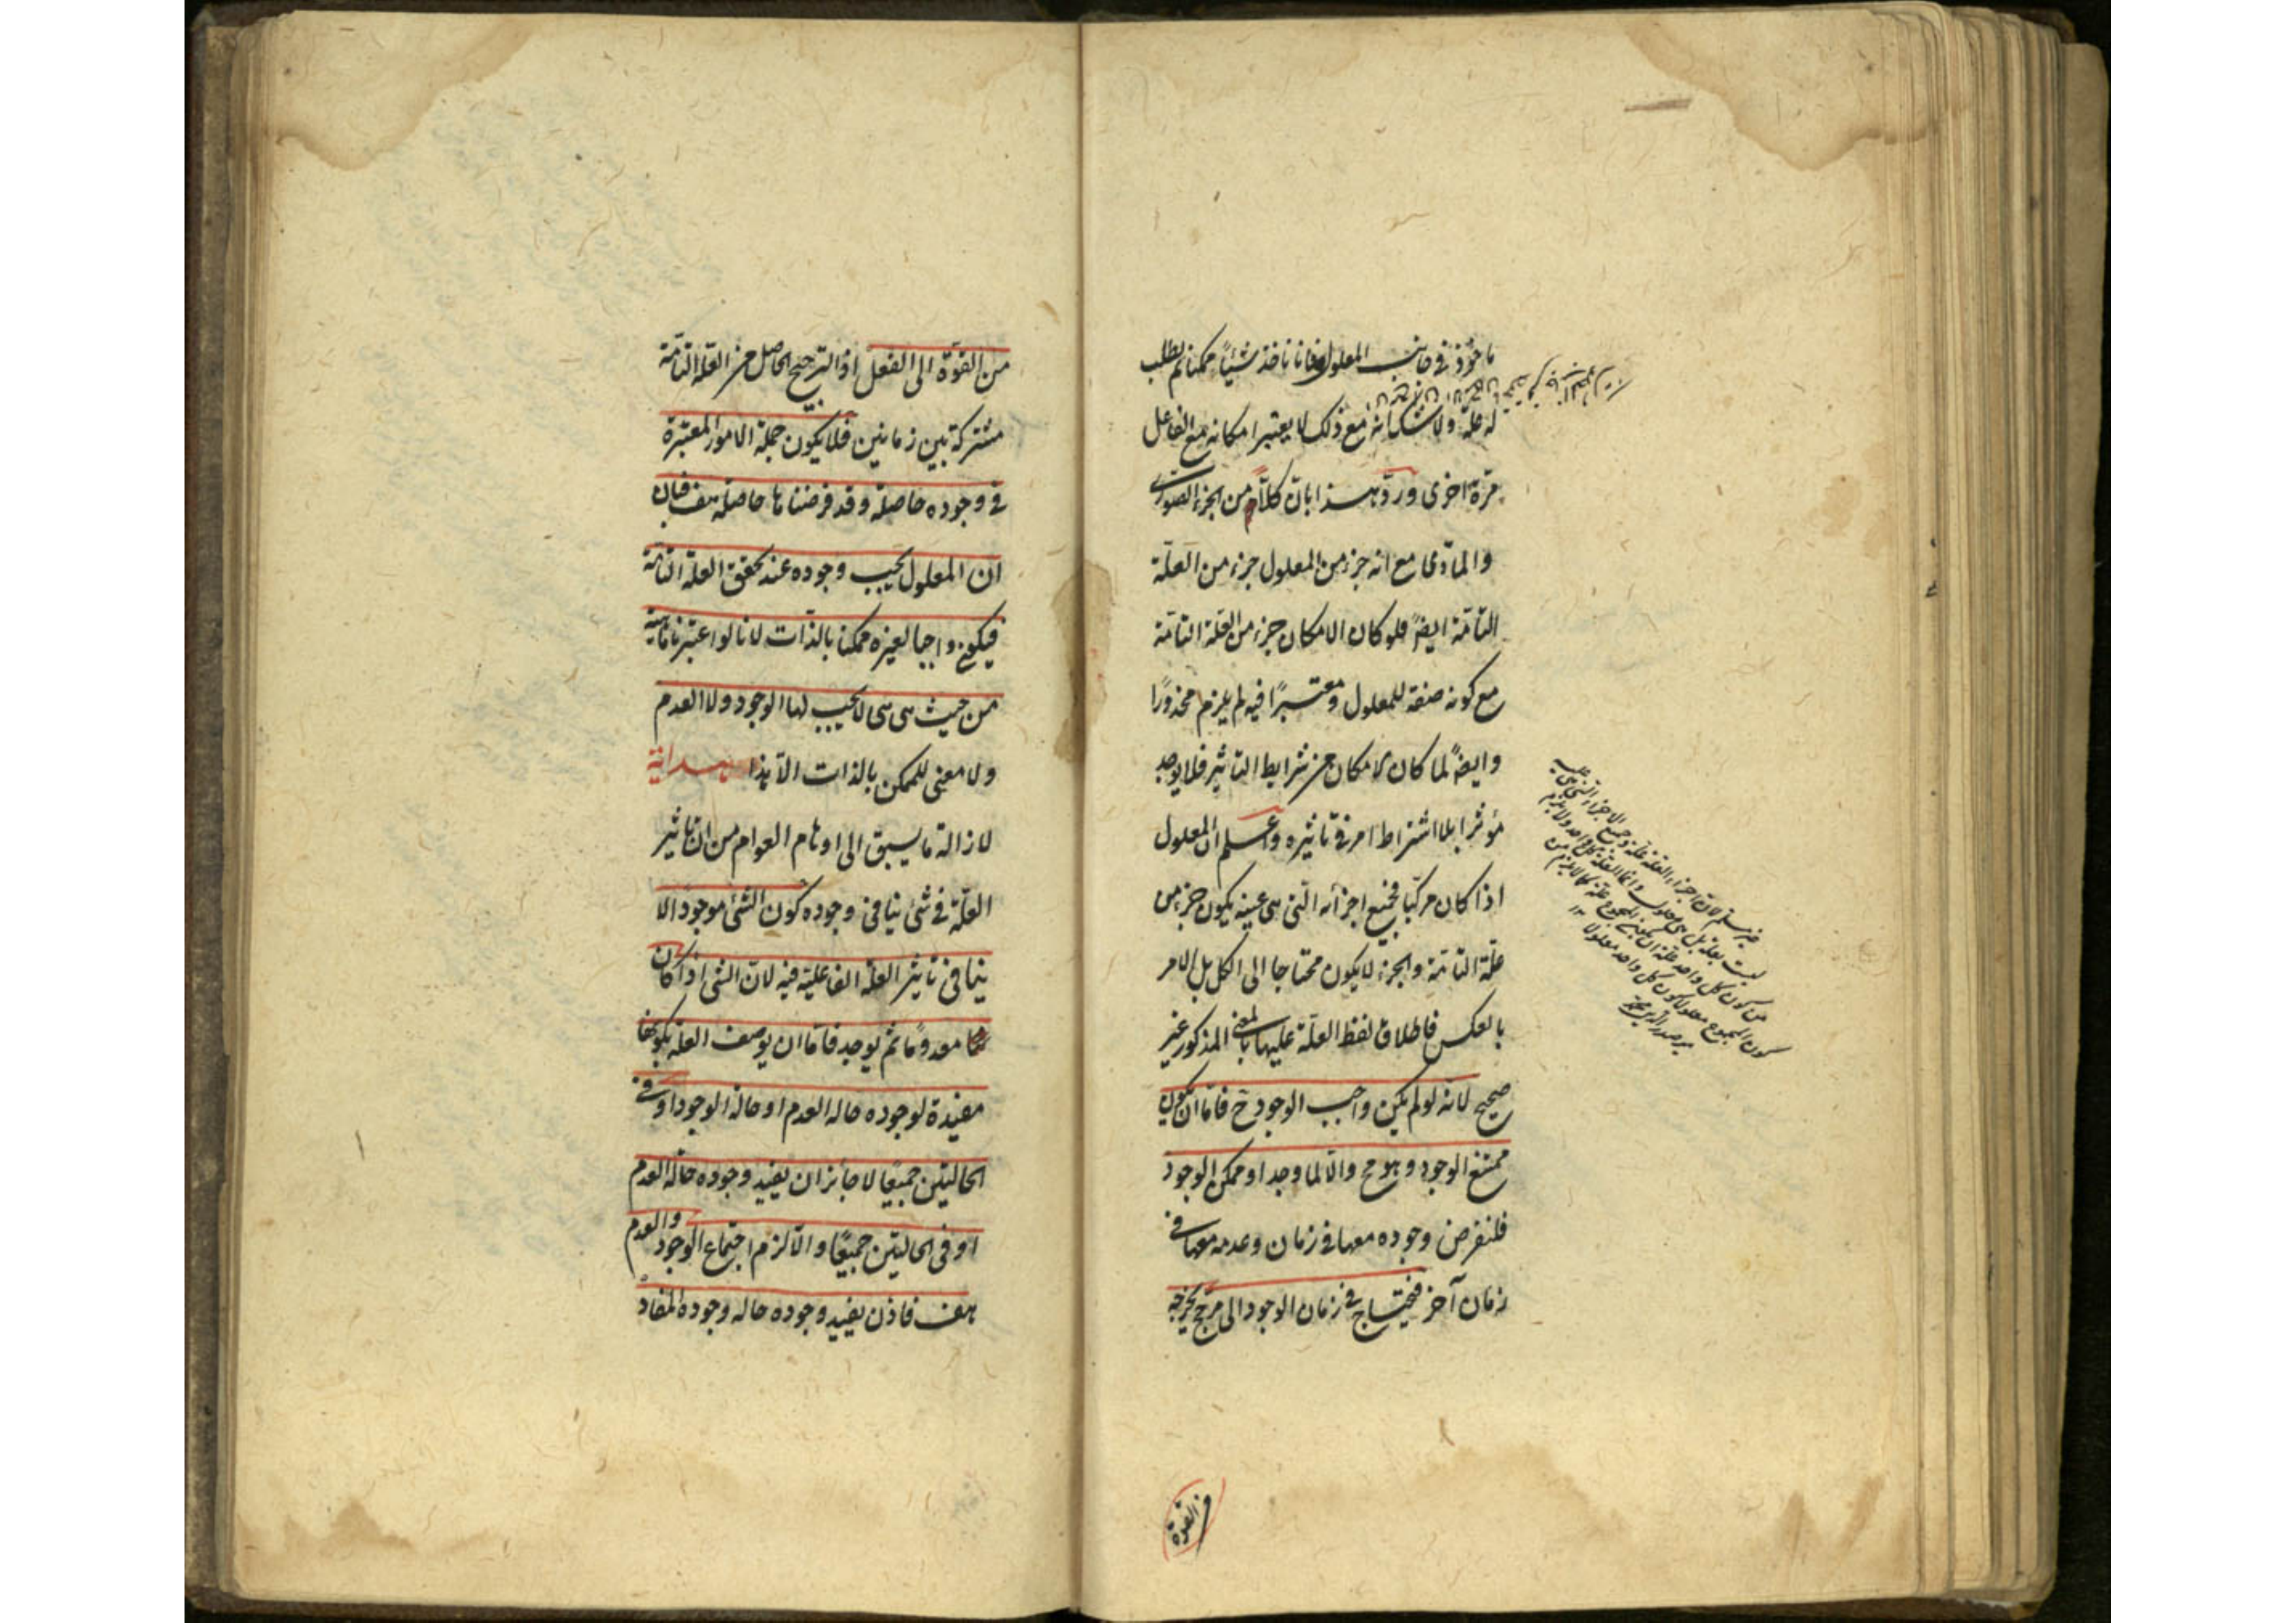 ماخوذ في جانب المعلول فانا ناخذ شيئاً ممكنا ثم نطلب
له علة ولا شك انه مع ذلك لا يعتبر امكانه مع الفاعل
مرة اخرى وردّ هذا بان كلاً من الجزء الصورى
والمادى مع انه جزء من المعلول جزء من العلّة
التامّة ايضً فلو كان الامكان جزء من العلة التامّة
مع كونه صفة للمعلول ومعتبرًا فيه لم يلزم محذورًا
وايضً لما كان الامكان من شرايط التاثير فلا يوجد
مؤثر بلا اشتراط امر في تاثيره واعلم ان المعلول
اذا كان مركبا فجميع اجزائه التى هى عينه يكون جزء من
علّة التامّة والجزء لا يكون محتاجا الى الكل بل الامر
بالعكس فاطلاق لفظ العلّة عليها بالمعنى المذكور غير
صحيح لانه لو لم يكن واجب الوجود ح فاما ان يكون
ممتنع الوجود وهو مح والّا لما وجد او ممكن الوجود
فلنفرض وجوده معها في زمان وعدمه معها في
زمان آخر فيحتاج في زمان الوجود الى مرجح يخرجه
غير مسلم لان اجزاء العلة علة وجميع الاجزاء التى هى عينه
ليست بعلة بل هى معلول وانما العلة كل واحد ولا يلزم
من كون كل واحد علة ان يكون المجموع علة كما لا يلزم من
كون المجموع معلولا كون كل واحد معلولا ١٢
مير صدر الدين محمد
من القوة
من القوّة الى الفعل اذ الترجيح الحاصل من العلة التامّة
مشتركة بين زمانين فلا يكون جملة الامور المعتبرة
في وجوده حاصلة وقد فرضناها حاصلة هف فبان
ان المعلول يجب وجوده عند تحقق العلة التامّة
فيكون واجبا لغيره ممكنا بالذات لانا لو اعتبرنا ماهيته
من حيث هى هى لا يجب لها الوجود ولا العدم
ولا معنى للممكن بالذات الّا هذا هداية
لازالة ما يسبق الى اوهام العوام من ان تاثير
العلّة في شئ ينافى وجوده كون الشئ موجودا لا
ينافى تاثير العلّة الفاعلية فيه لانّ الشئ اذا كان
معدومًا ثم يوجد فاما ان يوصف العلة بكونها
مفيدة لوجوده حالة العدم او حالة الوجود او في
الحالتين جميعًا لا جائز ان يفيد وجوده حالة العدم
او في الحالتين جميعًا والّا لزم اجتماع الوجود والعدم
هف فاذن يفيد وجوده حالة وجوده المفاد